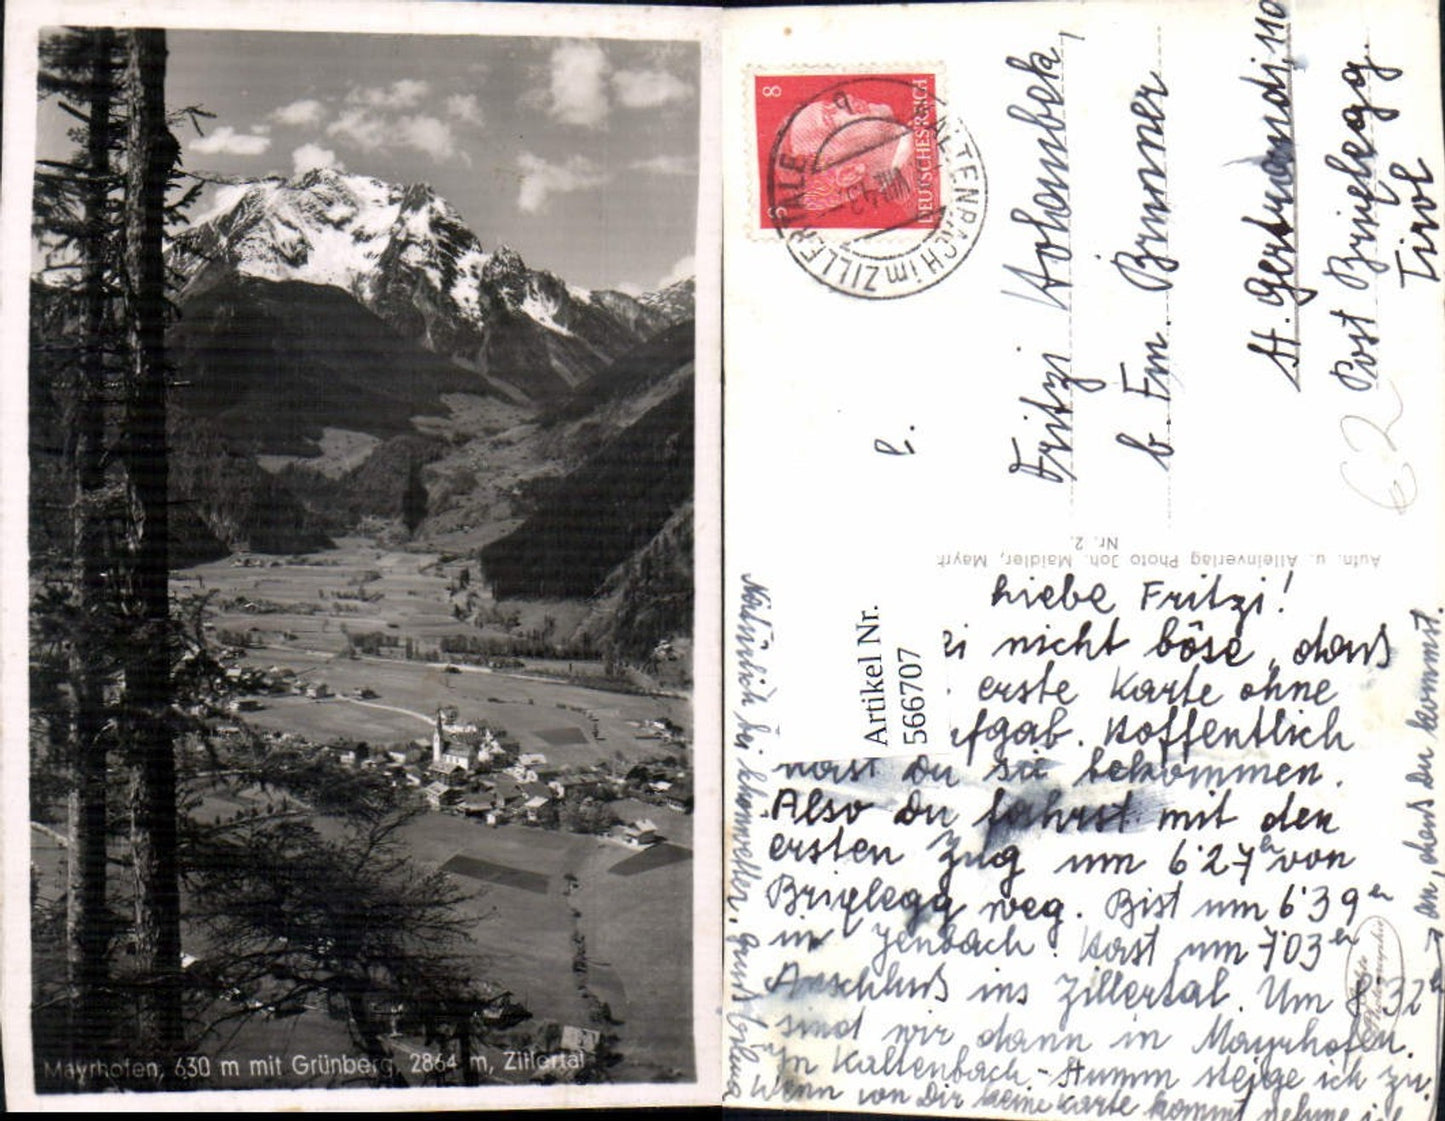 Mayrhofen, 630 m mit Grünberg, 2864 m, Zillertal
8
8
DEUTSCHES REICH
KALTENBACH im ZILLERTALE
Fritzi
b. Fm. Brunner
St. Gertraudi, 110
Post Brixlegg.
Tirol
€ 2
Aufn. u. Alleinverlag Photo Joh. Maidler, Mayrh
Nr. 2.
Artikel Nr.
566707
Liebe Fritzi!
ei nicht böse, daß
erste Karte ohne
ufgab. Hoffentlich
hast Du sie bekommen.
Also Du fahrst mit den
ersten Zug um 6'27h von
Brixlegg weg. Bist um 6'39
in Jenbach. Hast um 7'03
Anschluß ins Zillertal. Um 8'32
sind wir dann in Mayrhofen.
In Kaltenbach-Stumm steige ich zu.
Wenn von Dir keine Karte kommt nehme ich
an, daß Du kommst.
Natürlich bei schönwetter. Gruß